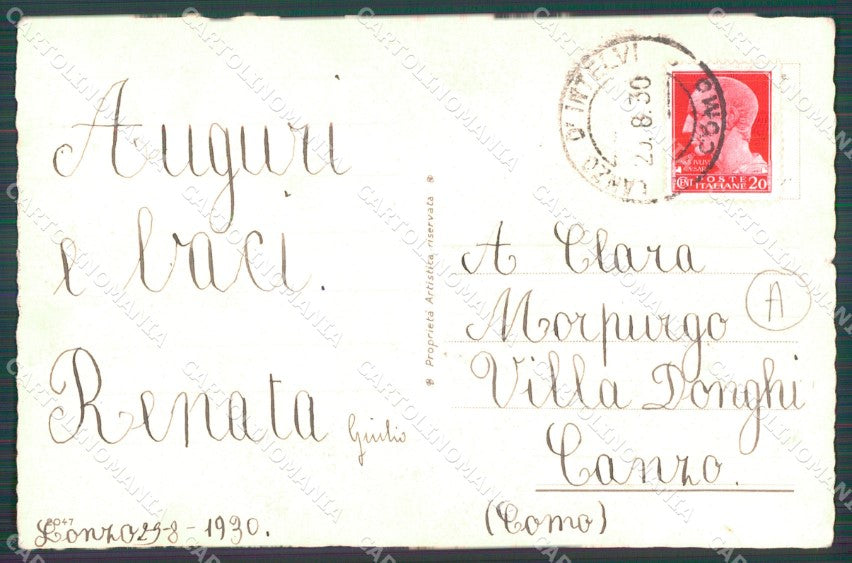 Auguri
e baci.
Renata Giulio
2047
Lanzo 29-8-1930.
Proprietà Artistica riservata
LANZO D'INTELVI COMO
8.30
POSTE
CENT ITALIANE 20
A Clara
Morpurgo
Villa Donghi
Canzo.
(Como)
A
CARTOLINOMANIA